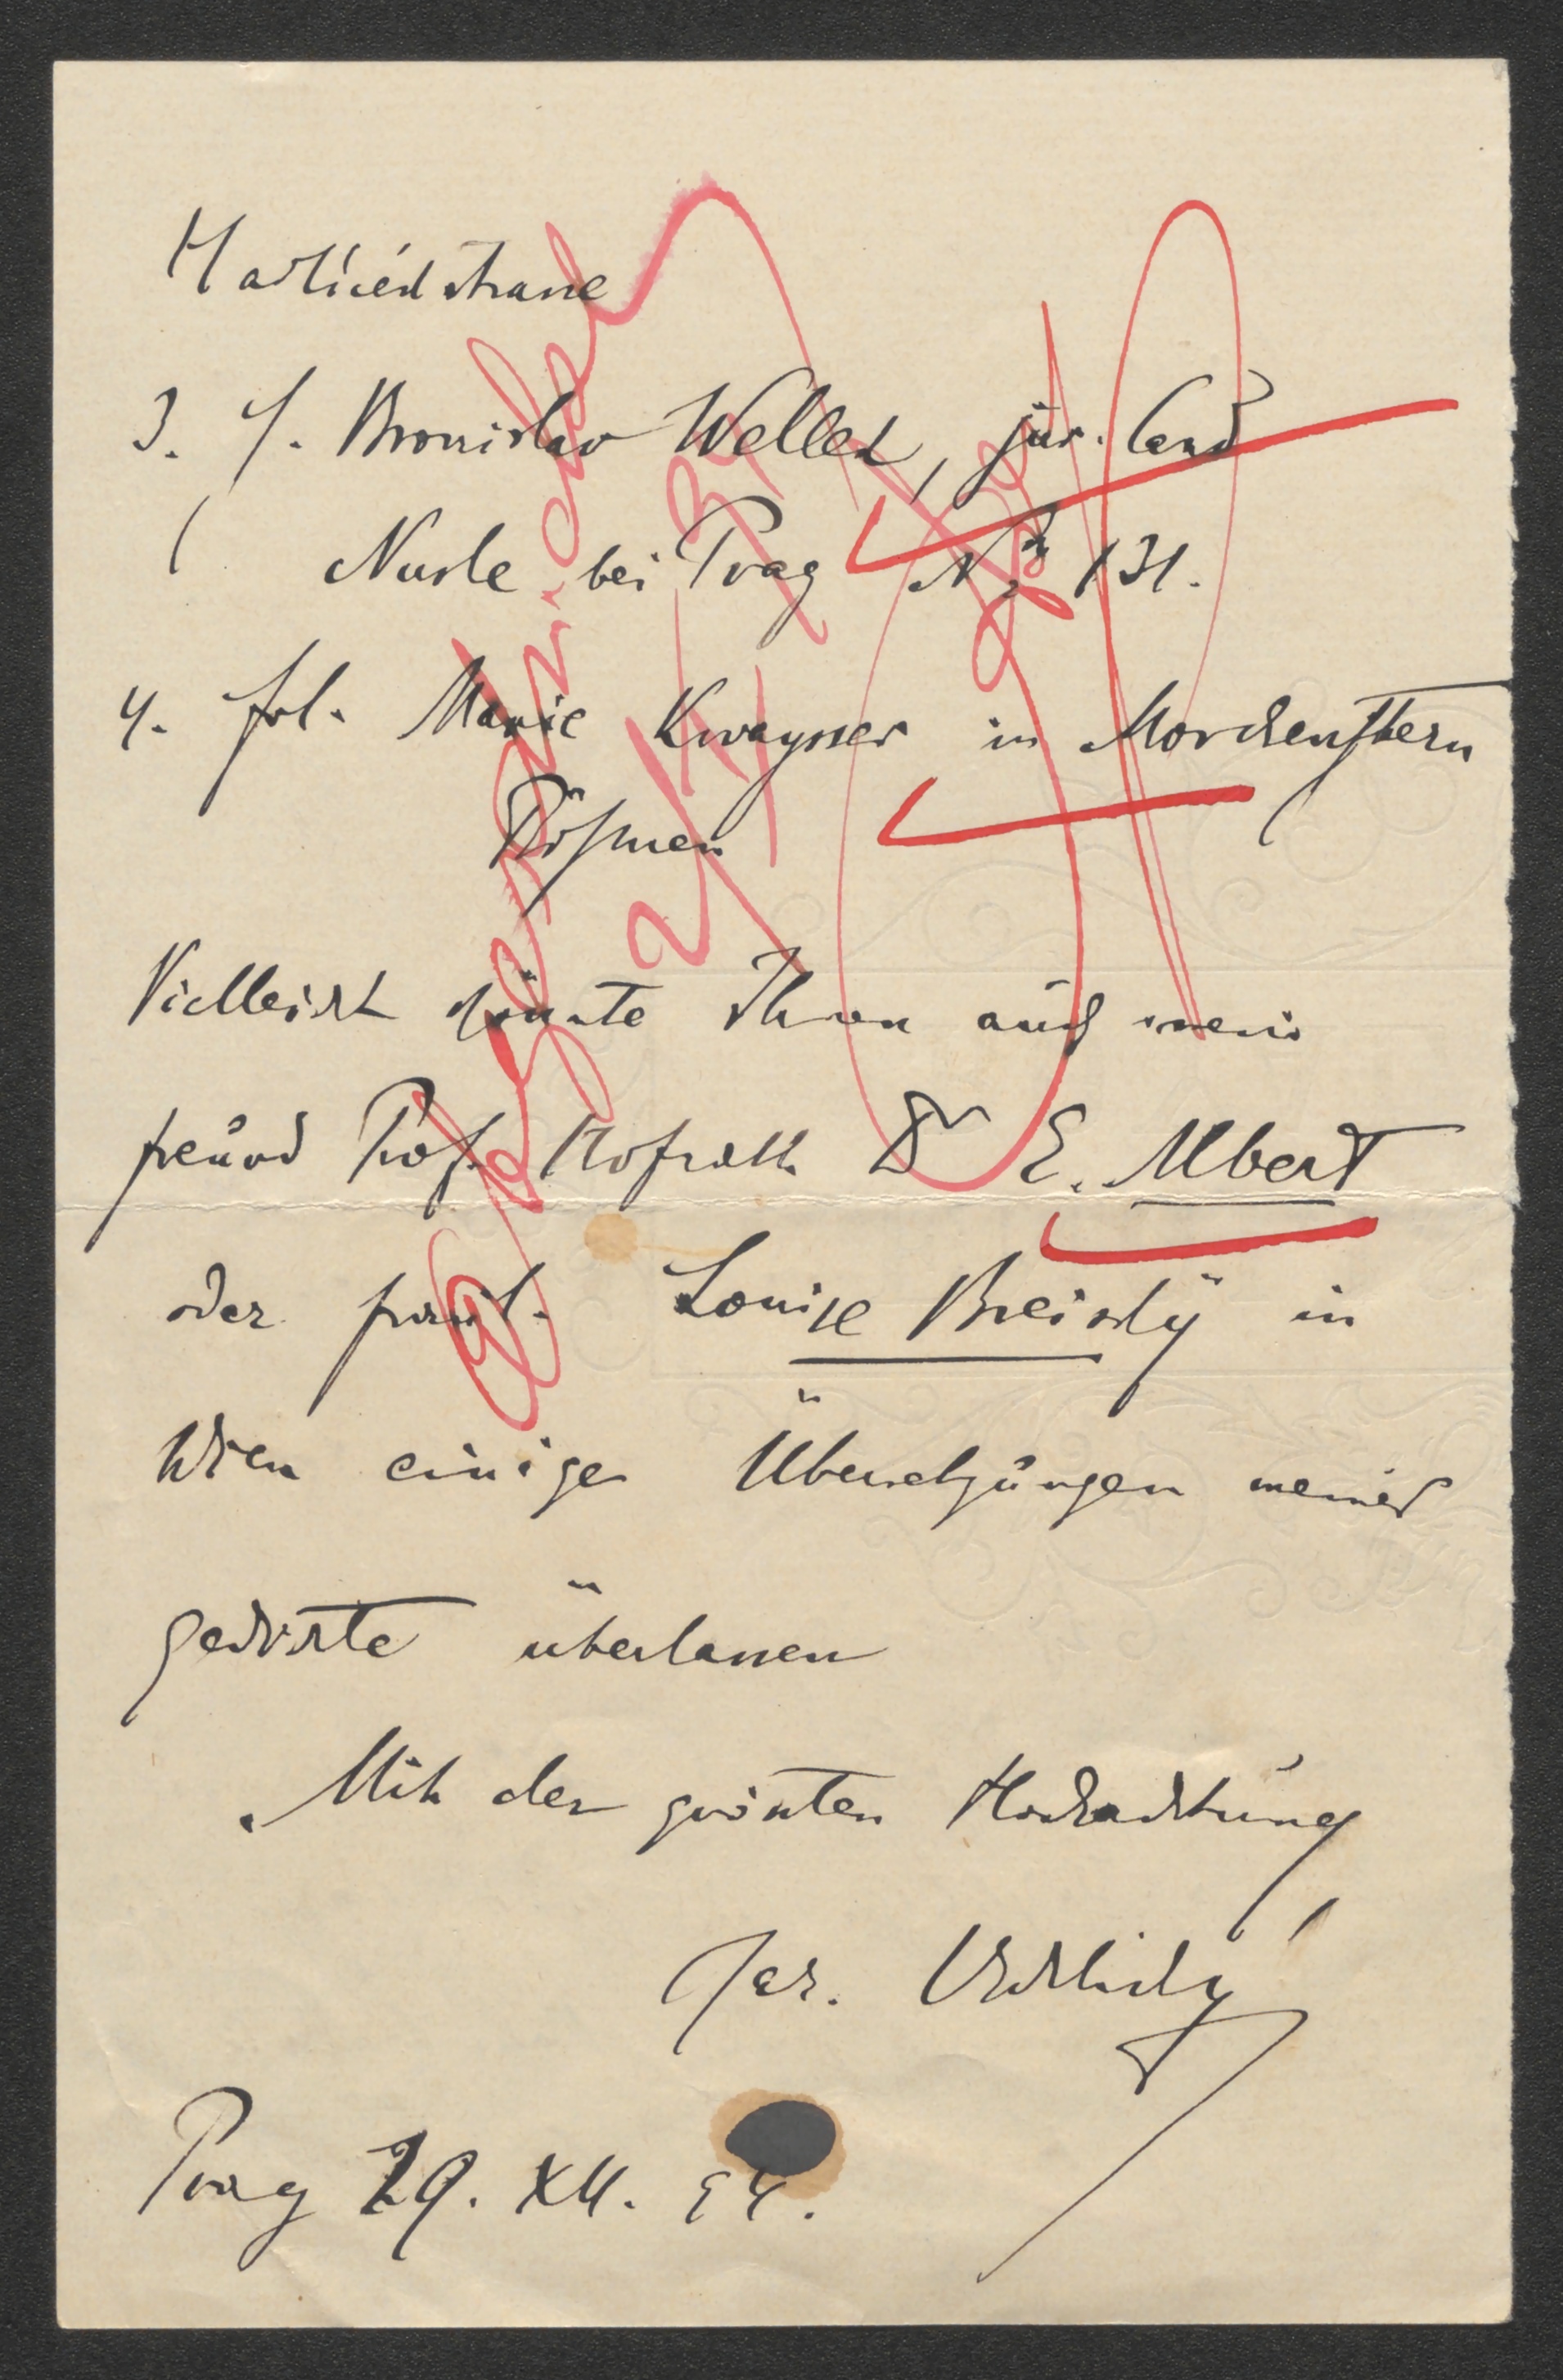 Havlíček strasse
3. H. Bronislav Wellek, jur. Cand
Nusle bei Prag No 131.
4. frl. Marie Kwaysser in Morchenstern
Böhmen
Vielleicht könnte Ihnen auch mein
freund Prof. Hofrath Dr E. Albert
oder fräul. Louise Breisky in
Wien einige Übersetzungen meiner
gedichte überlassen
Mit der grössten Hochachtung
Jar. Vrchlický
Prag 29. XII. 94.